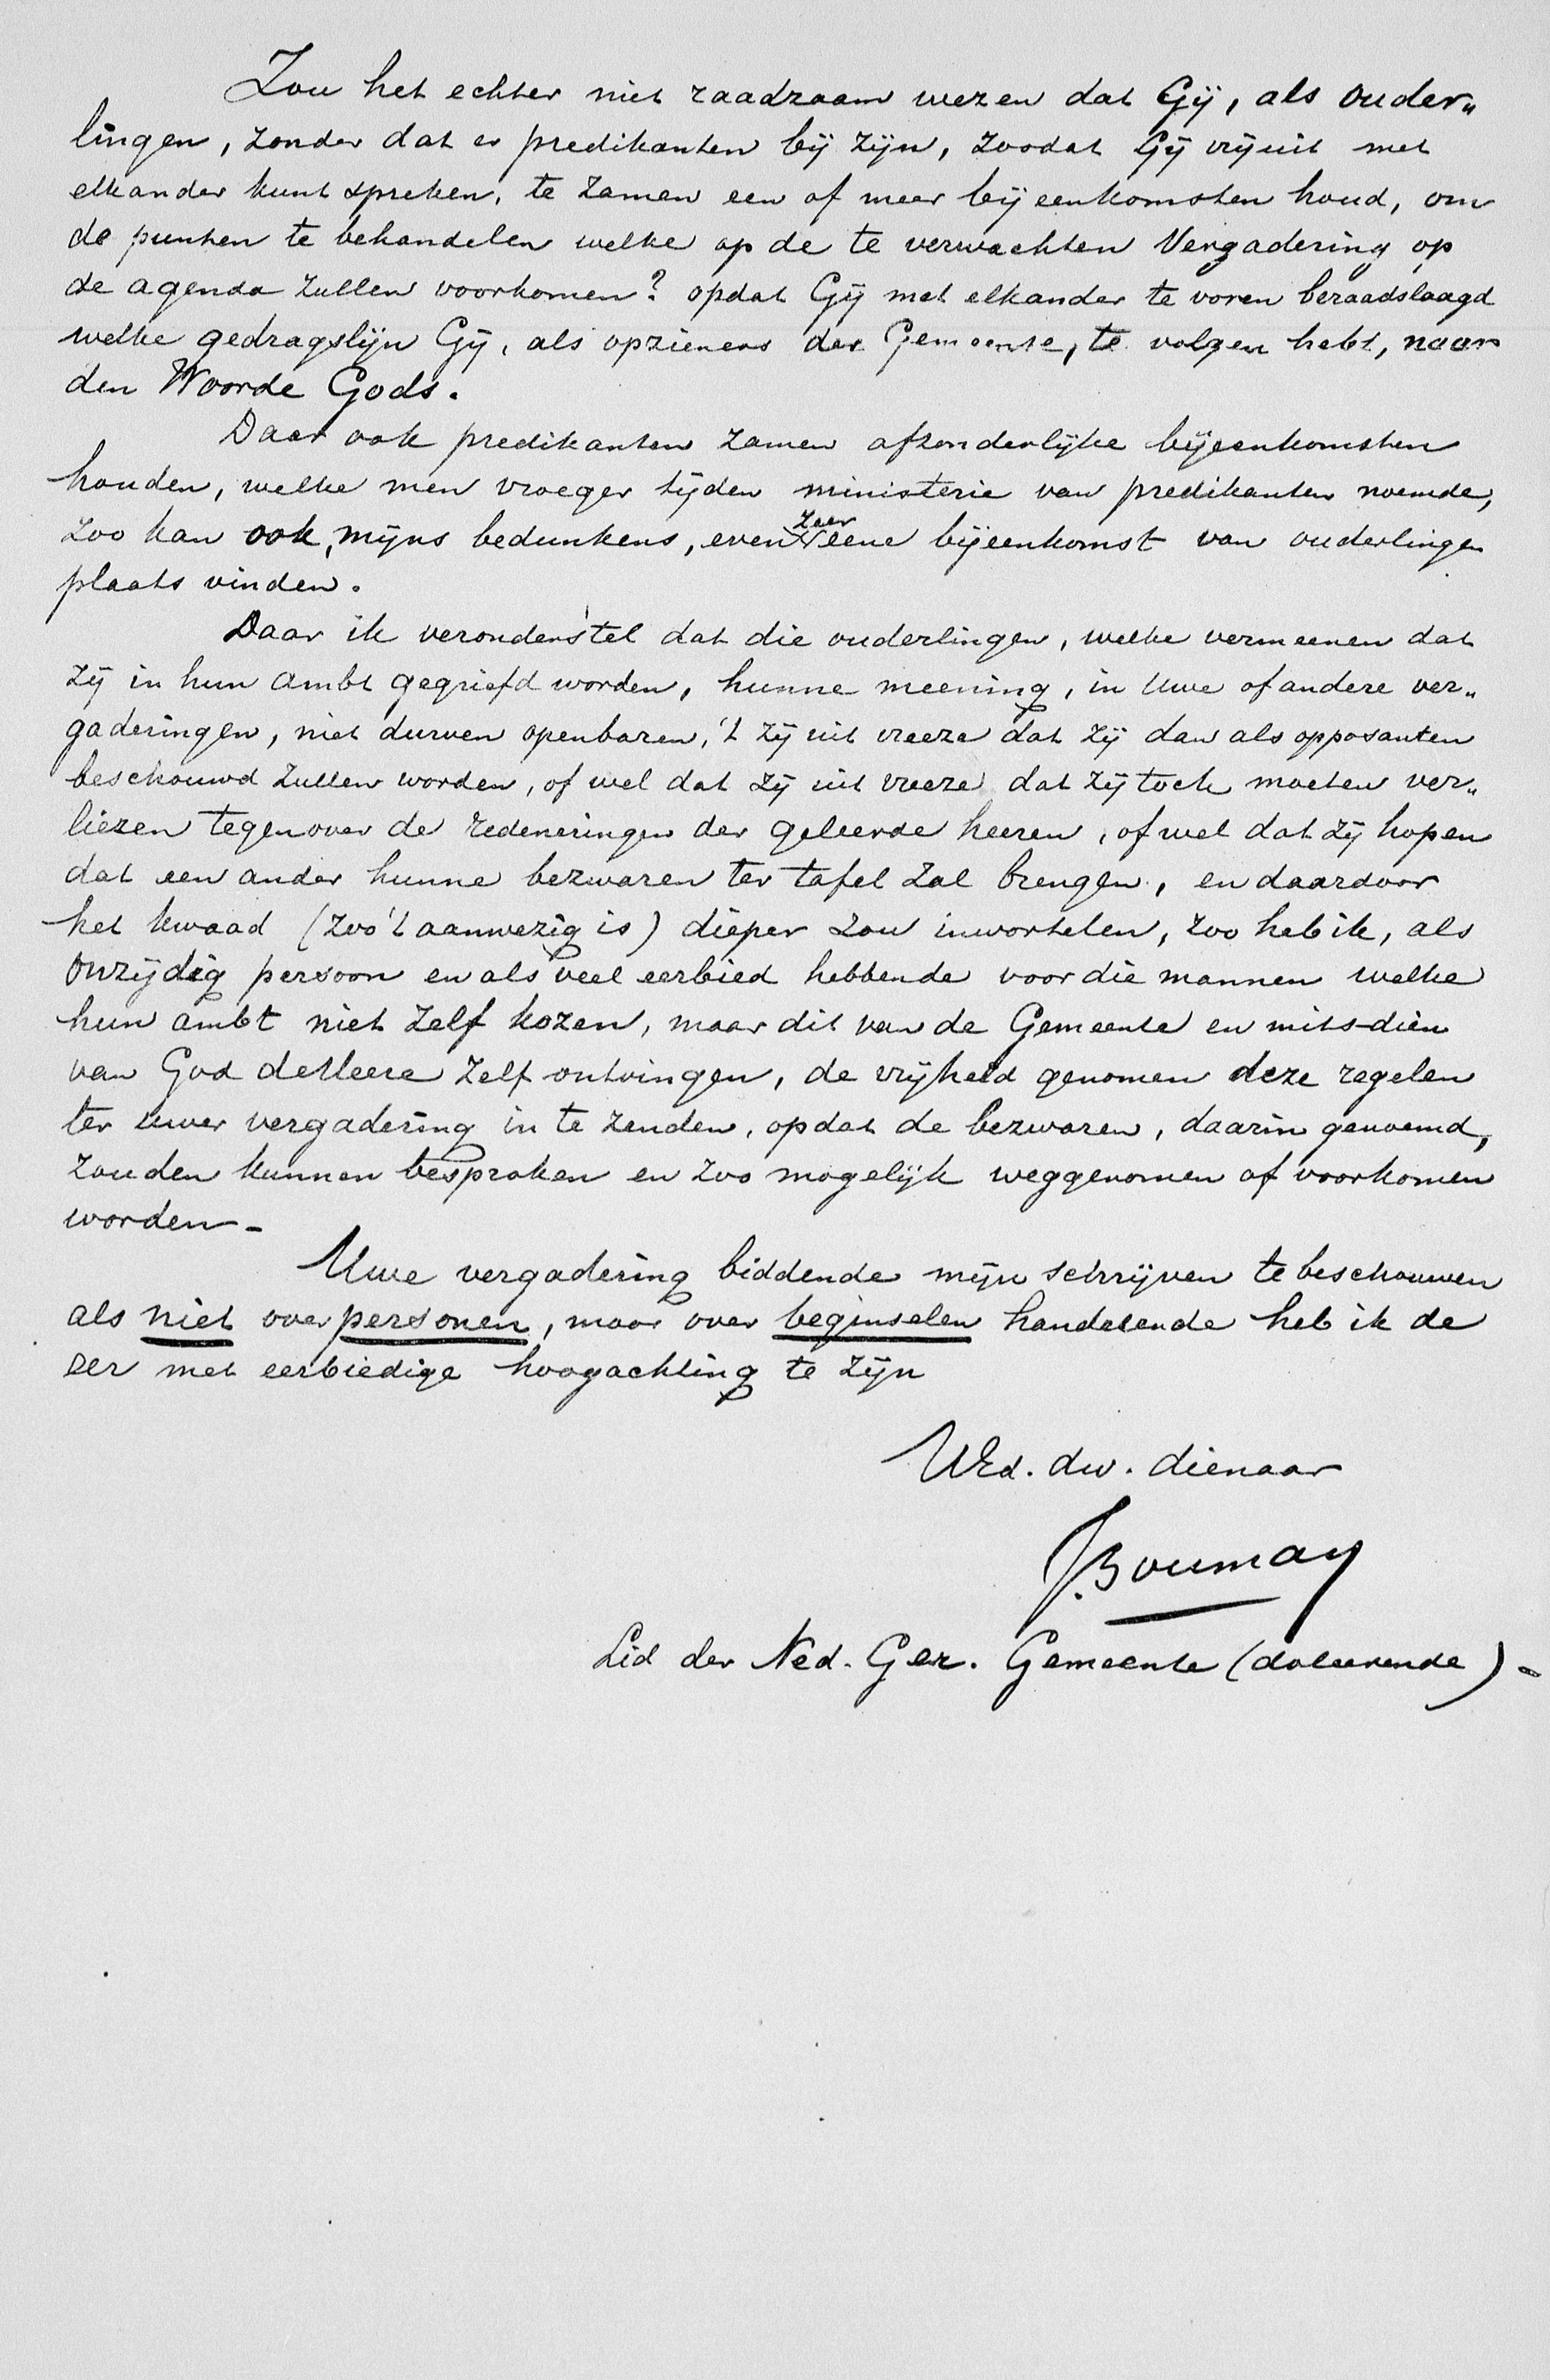 Zou het echter niet raadzaam wezen dat Gij, als ouder„
lingen, zonder dat er predikanten bij zijn, zoodat Gij vrijuit met
elkander kunt spreken, te zamen een of meer bijeenkomsten houd, om
de punten te behandelen welke op de te verwachten Vergadering op
de agenda zullen voorkomen? opdat Gij met elkander te voren beraadslaagd
welke gedragslijn Gij, als opzieners der Gemeente, te volgen hebt, naar
den Woorde Gods.
Daar ook predikanten zamen afzonderlijke bijeenkomsten
houden, welke men vroeger tijden ministerie van predikanten noemde,
zoo kan ook, mijns bedunkens, evenzeer eene bijeenkomst van ouderlingen
plaats vinden.
Daar ik veronderstel dat die ouderlingen, welke vermeenen dat
zij in hun ambt gegriefd worden, hunne meening, in Uwe of andere ver„
gaderingen, niet durven openbaren, 't zij uit vreeze dat zij dan als opposanten
beschouwd zullen worden, of wel dat zij uit vreeze dat zij toch moeten ver„
liezen tegenover de redeneringen der geleerde heeren, of wel dat zij hopen
dat een ander hunne bezwaren ter tafel zal brengen, en daardoor
het kwaad (zoo 't aanwezig is) dieper zou inwortelen, zoo heb ik, als
onzijdig persoon en als veel eerbied hebbende voor die mannen welke
hun ambt niet zelf kozen, maar dit van de Gemeente en mits-dien
van God de Heere zelf ontvingen, de vrijheid genomen deze regelen
ter uwer vergadering in te zenden, opdat de bezwaren, daarin genoemd,
zouden kunnen besproken en zoo mogelijk weggenomen of voorkomen
worden-
Uwe vergadering biddende mijn schrijven te beschouwen
als niet over personen, maar over beginselen handelende heb ik de
eer met eerbiedige hoogachting te zijn
UEd. dw. dienaar
J. Bouman
Lid der Ned. Ger. Gemeente (doleerende)-